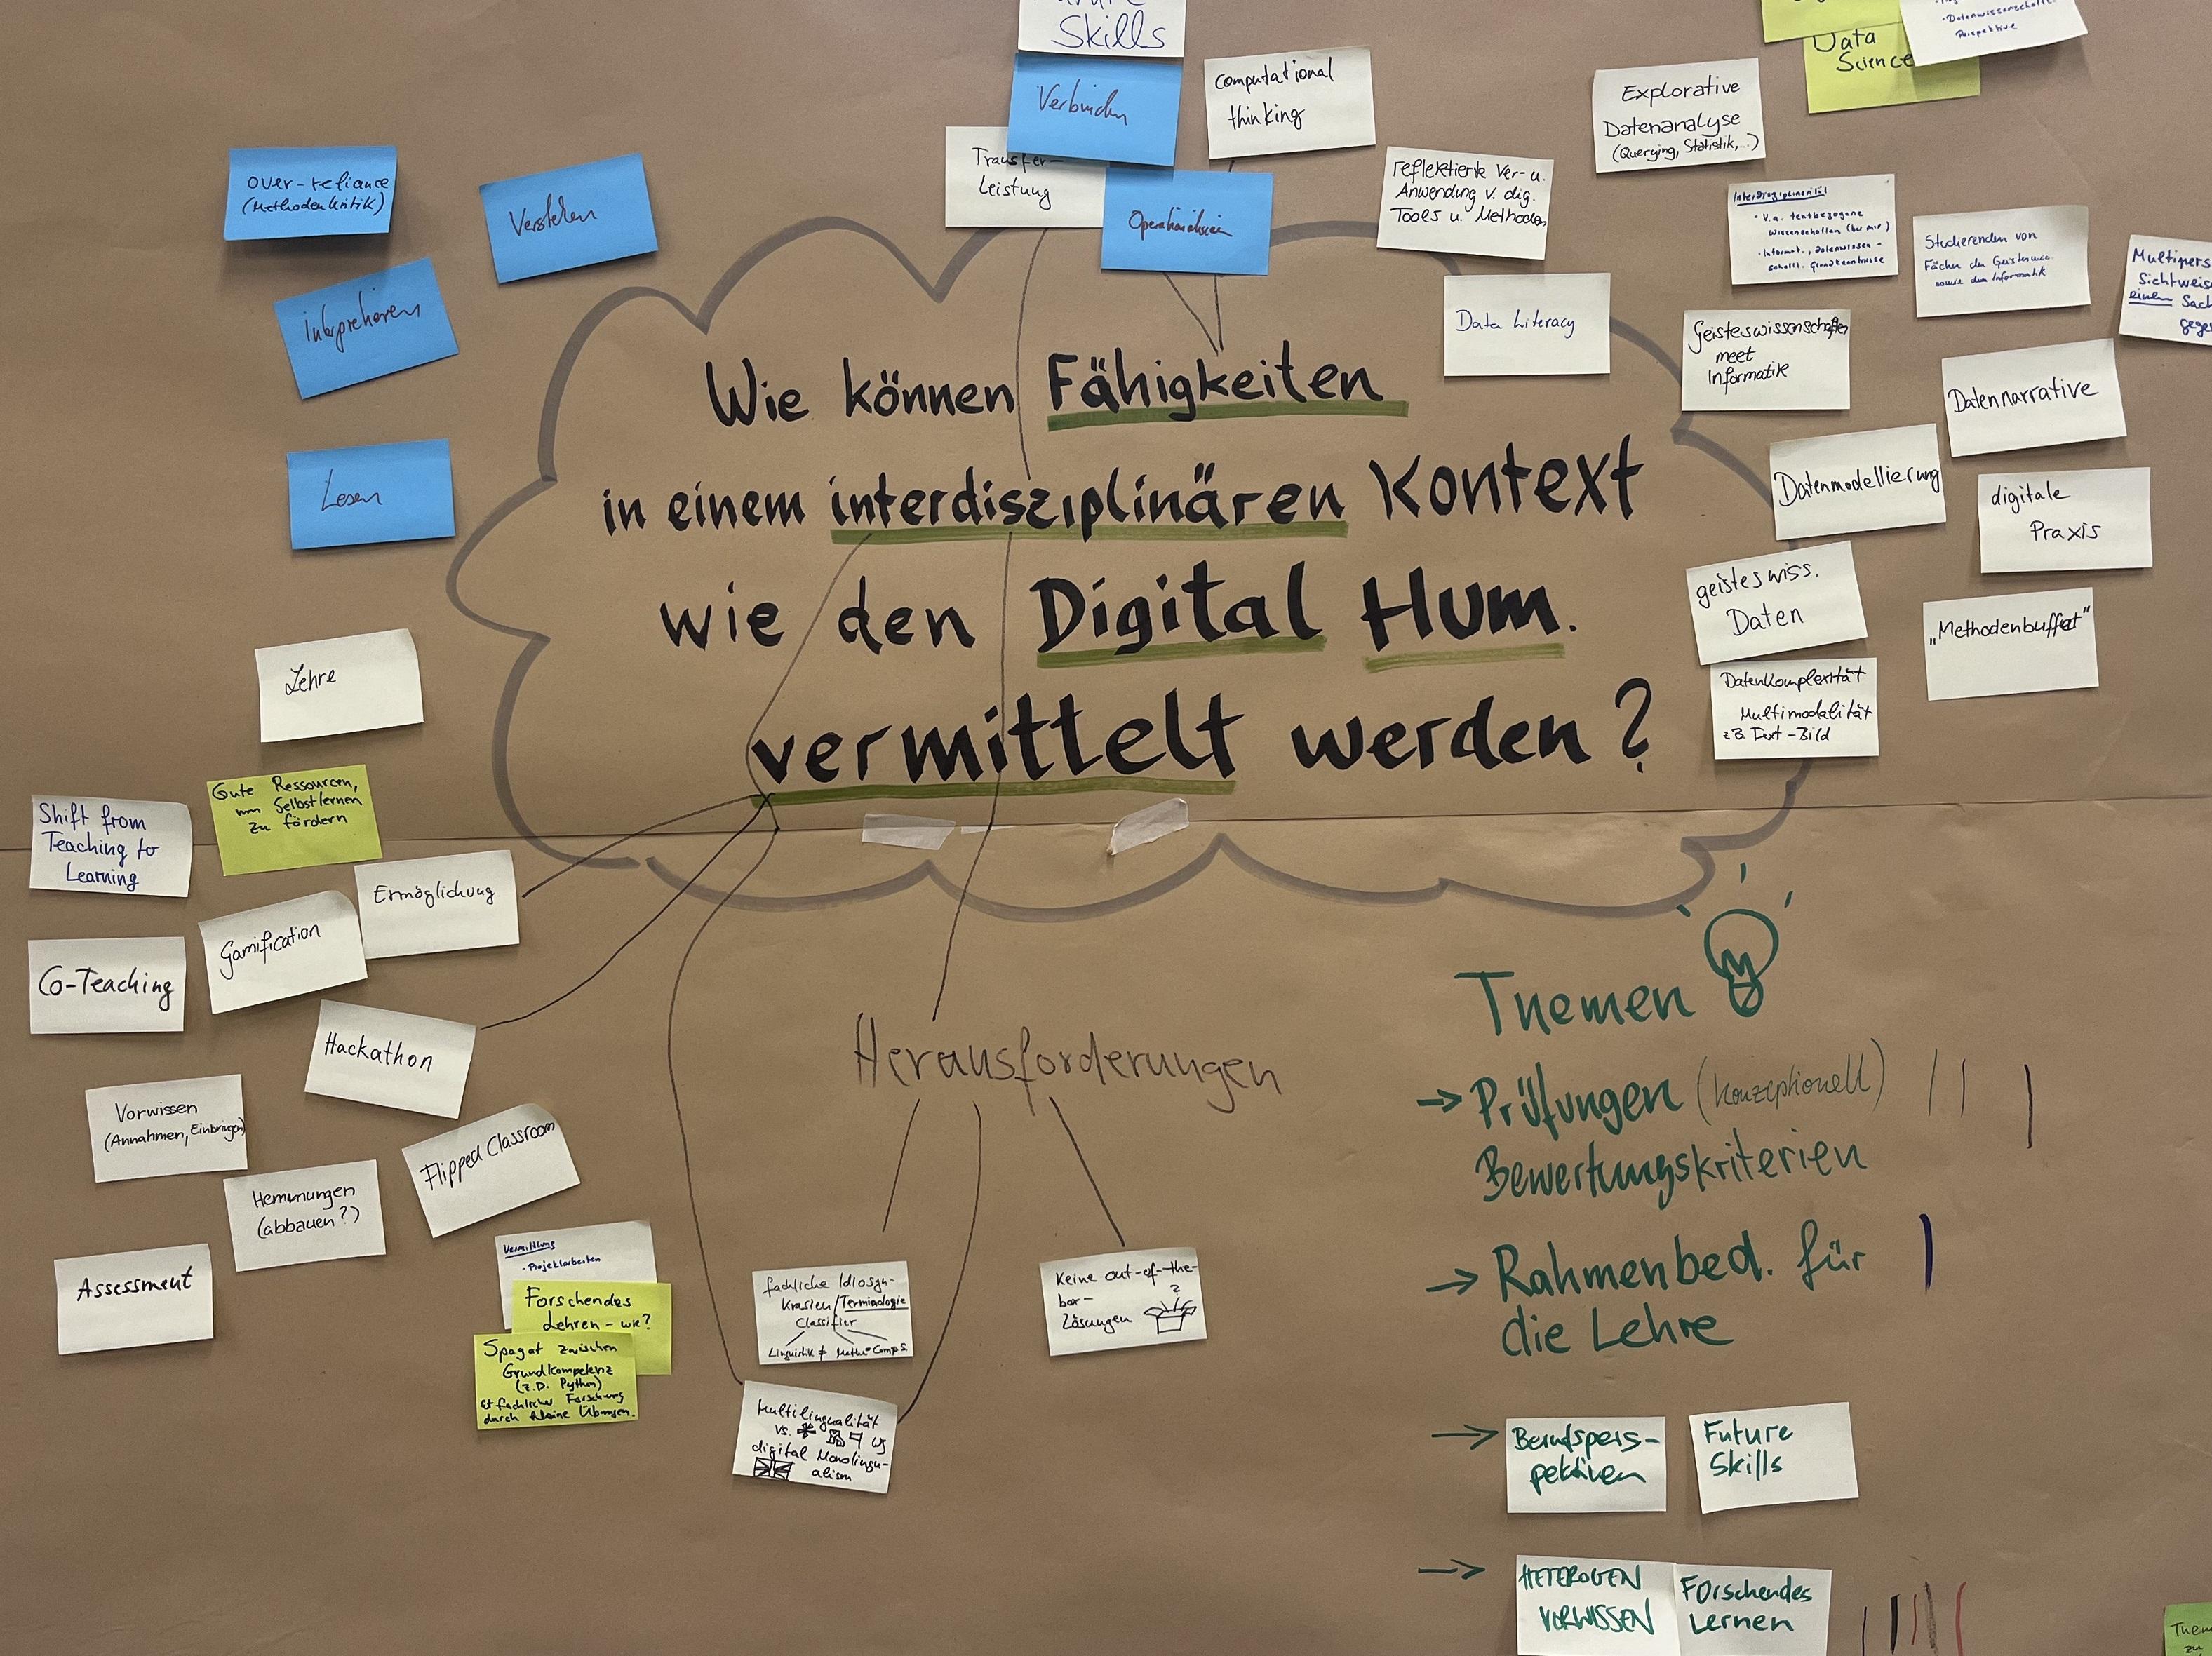 Skills
Verbinden
computational
thinking
Transfer-
Leistung
Operationalisieren
reflektierte Ver- u.
Anwendung v. dig.
Tools u. Methoden
Data Literacy
Explorative
Datenanalyse
(Querying, Statistik,..)
Data
Science
• Datenwissenschaftl.
Perspektive
Interdisziplinarität
• v.a. textbezogene
Wissenschaften (bei mir)
• Informat., datenwissen-
schaftl. Grundkenntnisse
Studierenden von
Fächer der Geisteswiss.
sowie der Informatik
Multipers
Sichtweis
einen Sach
gege
Geisteswissenschaften
meet
Informatik
Datennarrative
Datenmodellierung
digitale
Praxis
geisteswiss.
Daten
„Methodenbuffet"
Datenkomplexität
Multimodalität
z.B. Text-Bild
over-reliance
(Methodenkritik)
Verstehen
Interpretieren
Lesen
Wie können Fähigkeiten
in einem interdisziplinären Kontext
wie den Digital Hum.
vermittelt werden?
Lehre
Gute Ressourcen,
um Selbstlernen
zu fördern
Shift from
Teaching to
Learning
Ermöglichung
Gamification
Co-Teaching
Hackathon
Vorwissen
(Annahmen, Einbringen)
Flipped Classroom
Hemmungen
(abbauen?)
Assessment
Vermittlung
• Projektarbeiten
Forschendes
Lehren - wie?
Spagat zwischen
Grundkompetenz
(z.B. Python)
fachlicher Forschung
durch kleine Übungen.
Herausforderungen
fachliche Idiosyn-
krasien/Terminologie
Classifier
Linguistik ≠ Mathe-CompS
Keine out-of-the-
box-
Lösungen
Multilingualität
vs.
digital Monolingu-
alism
Themen
→ Prüfungen (konzeptionell)
Bewertungskriterien
→ Rahmenbed. für
die Lehre
→ Berufspers-
pektiven
Future
Skills
→ HETEROGEN
VORWISSEN
Forschendes
Lernen
Them
zu